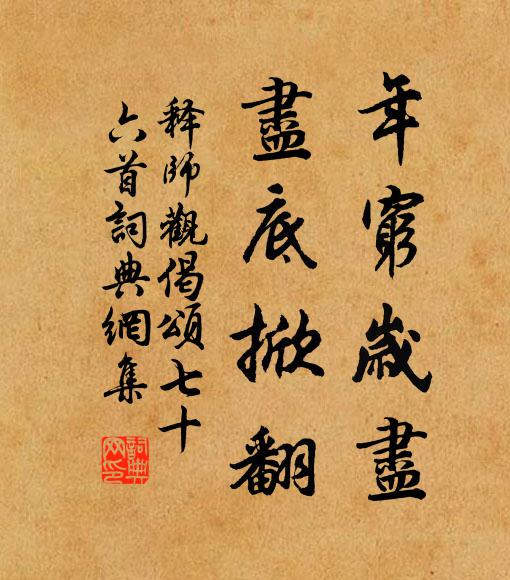 年窮歲盡
盡底掀翻
释師觀偈頌七十
六首詞典網集
詞典網印